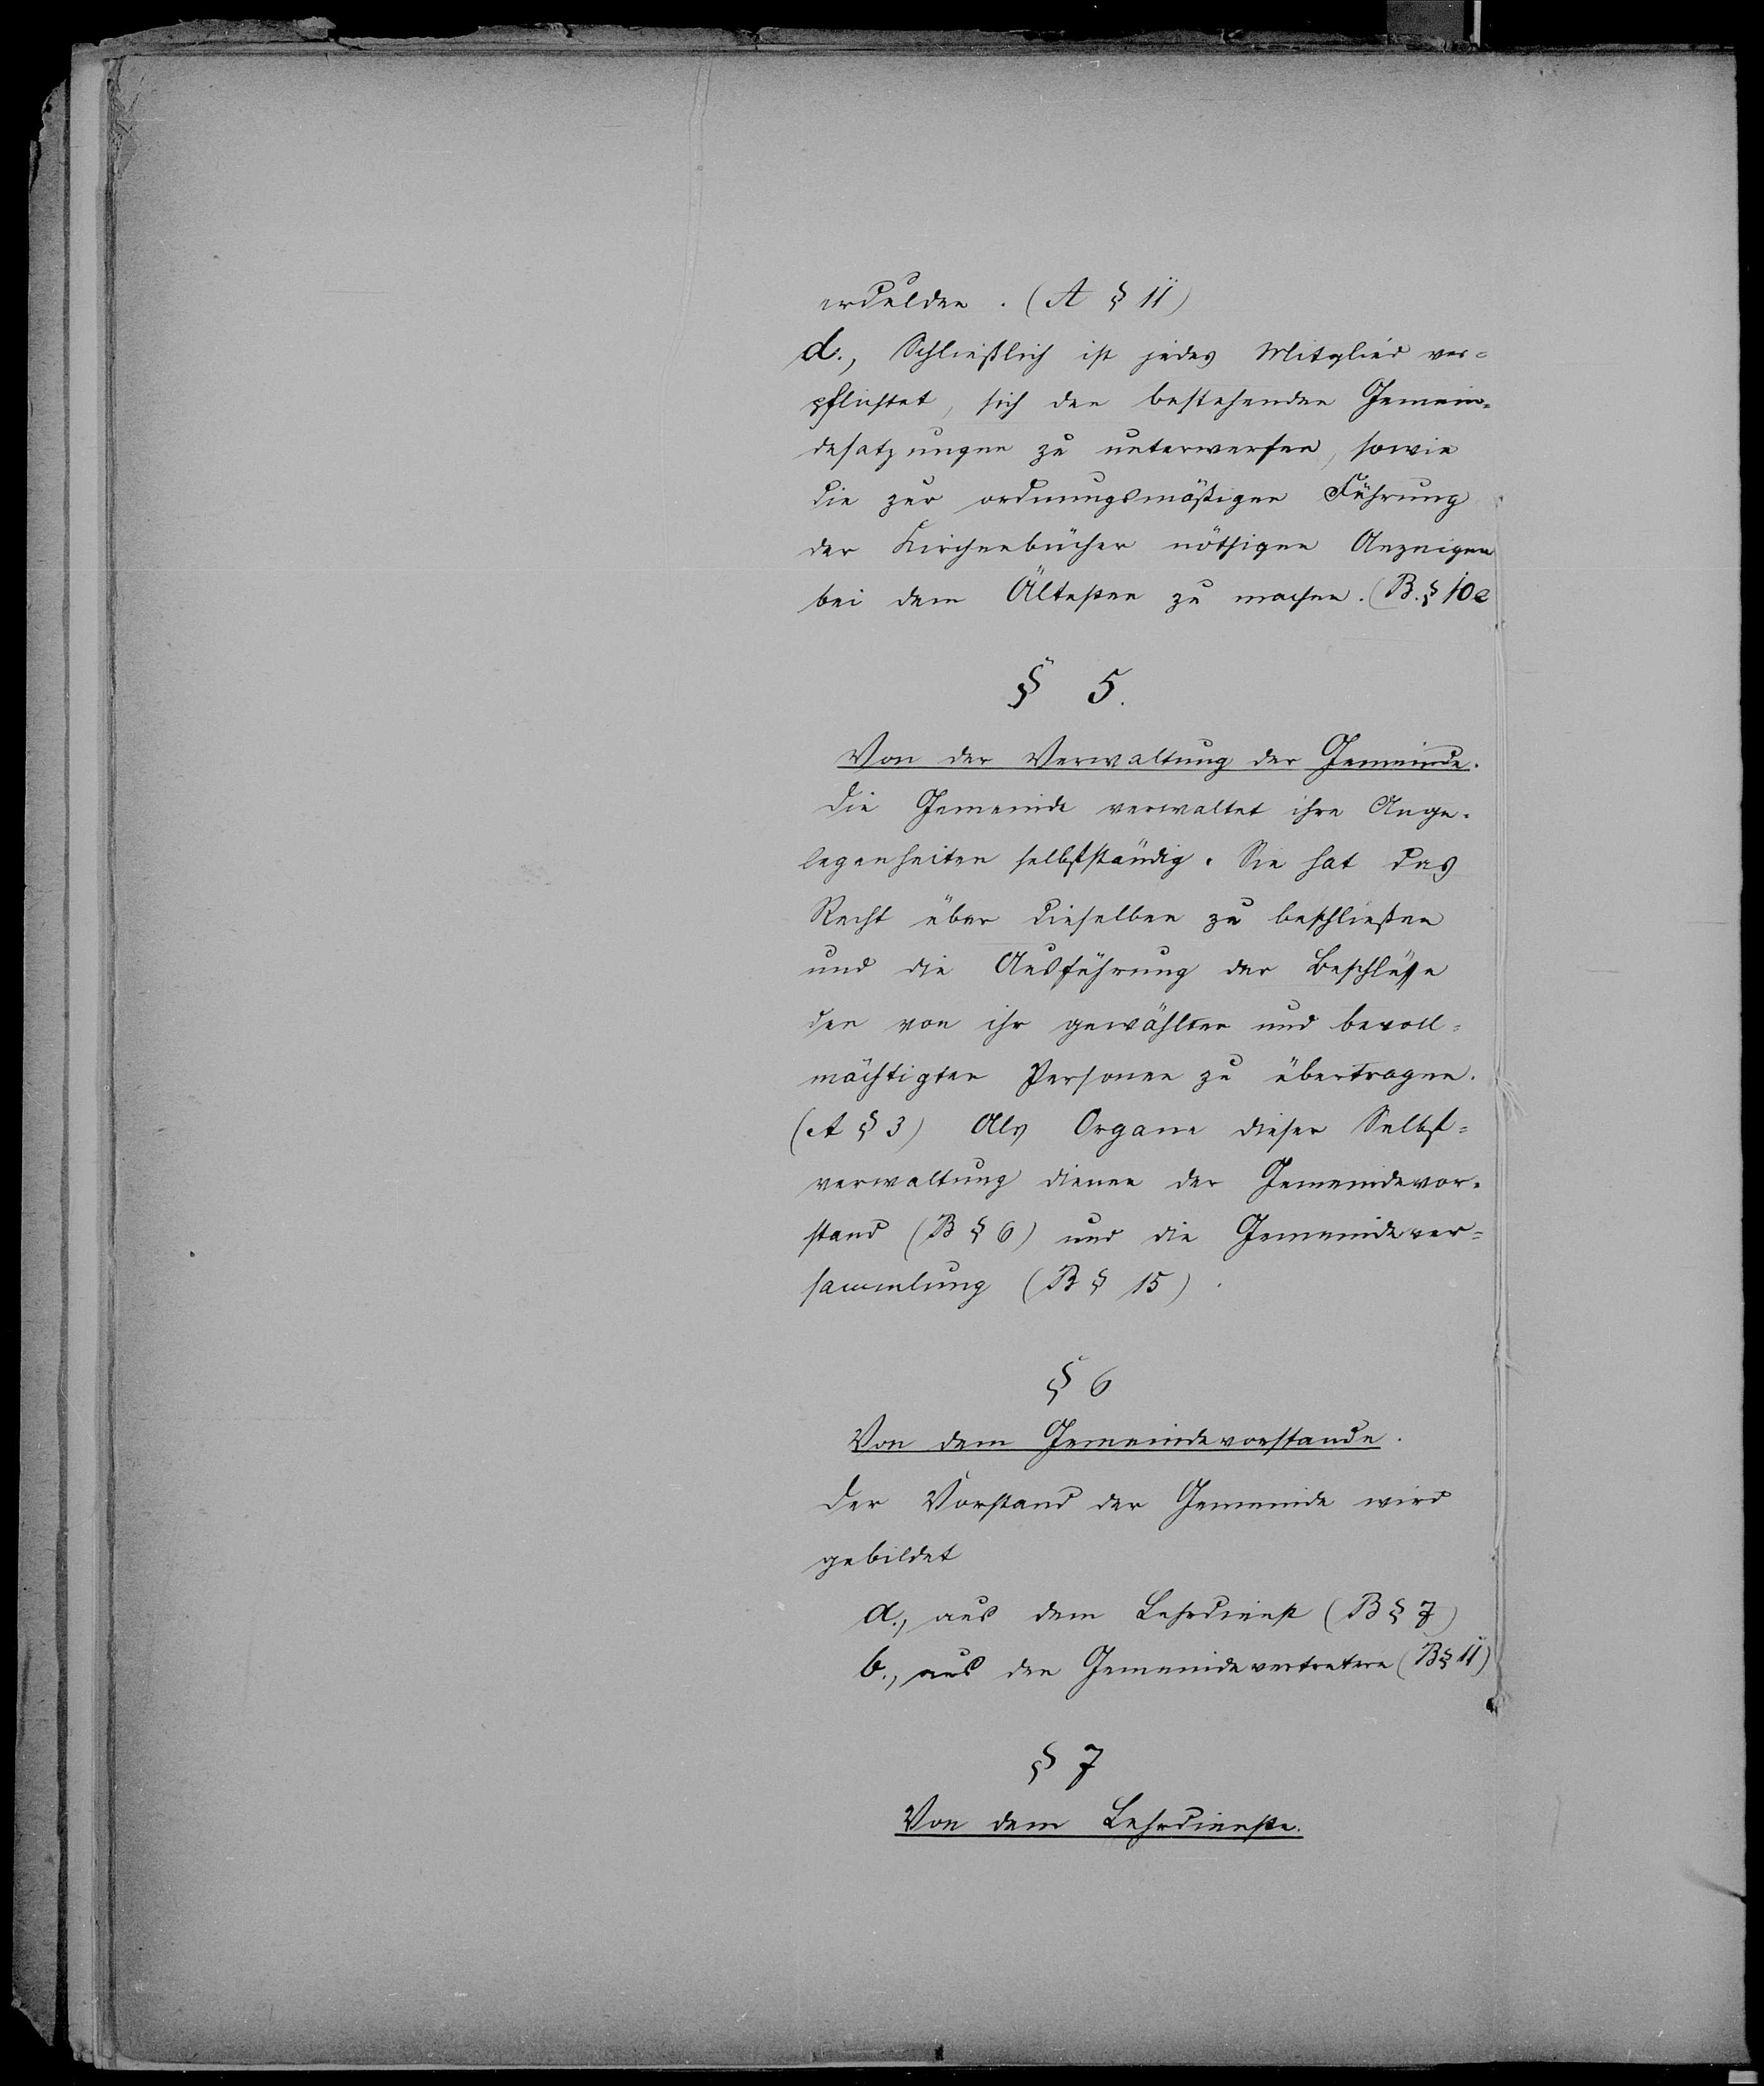 erdulden. (A § 11)
d., Schließlich ist jedes Mitglied ver=
pflichtet, sich den bestehenden Gemein=
desatzungen zu unterwerfen, sowie
die zur ordnungsmäßigen Führung
der Kirchenbücher nöthigen Anzeigen
bei dem Ältesten zu machen. (B. § 10e
§ 5.
Von der Verwaltung der Gemeinde.
Die Gemeinde verwaltet ihre Ange=
legenheiten selbstständig. Sie hat das
Recht über dieselben zu beschließen
und die Ausführung der Beschlüße
den von ihr gewählten und bevoll=
mächtigten Personen zu übertragen.
(A § 3) Als Organe dieser Selbst=
verwaltung dienen der Gemeindevor=
stand (B § 6) und die Gemeindever=
sammlung (B § 15).
§ 6
Von dem Gemeindevorstande.
Der Vorstand der Gemeinde wird
gebildet
a., aus dem Lehrdienst (B § 7)
b., aus den Gemeindevertretern (B § 11)
§ 7
Von dem Lehrdienste.